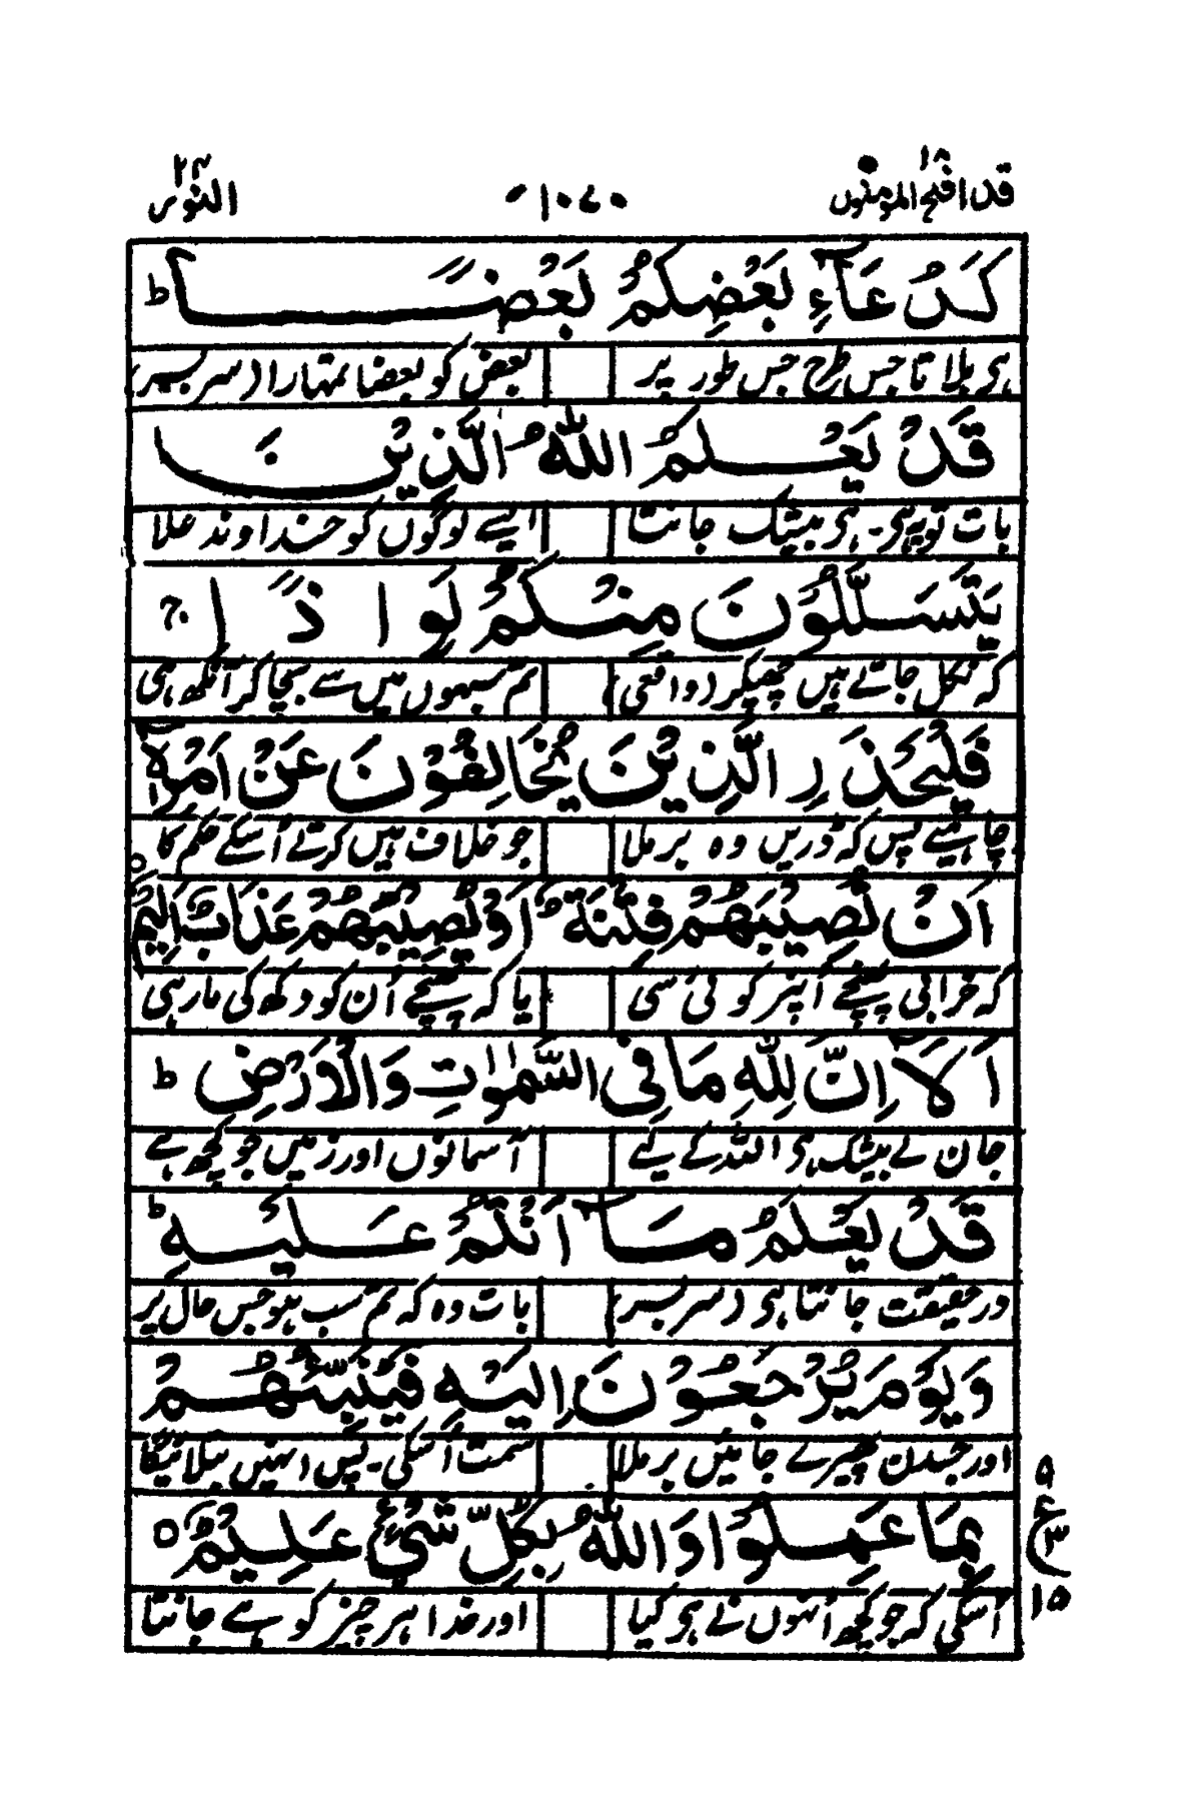 قد افلح المؤمنون ١٨ ١٠٧٠ النور ٢٤
كَدُعَآءِ بَعْضِكُمْ بَعْضًا ط
ہی بلاتا جس طرح جس طور پر بعض کو بعضا تمہارا (سر بسر)
قَدْ يَعْلَمُ اللّٰهُ الَّذِيْنَ
بات تو یہ ہی۔ ہی بیشک جانتا ایسے لوگوں کو خداوند علا
يَتَسَلَّلُوْنَ مِنْكُمْ لِوَاذًا ج
کہ نکل جاتے ہیں چھپکر (واقعی) تم سبہوں میں سے بچا کر آنکھ ہی
فَلْيَحْذَرِ الَّذِيْنَ يُخَالِفُوْنَ عَنْ اَمْرِهٖٓ
چاہئیے پس کہ ڈریں وہ برملا جو خلاف ہیں کرتے اُسکے حکم کا
اَنْ تُصِيْبَهُمْ فِتْنَةٌ اَوْ يُصِيْبَهُمْ عَذَابٌ اَلِيْمٌ ○
کہ خرابی پہنچے اُنپر کوئی سی یا کہ پہنچے اُن کو دکھ کی مار ہی
اَلَآ اِنَّ لِلّٰهِ مَا فِى السَّمٰوٰتِ وَالْاَرْضِ ط
جان لے بیشک ہی اللہ کے لیے آسمانوں اور زمیں جو کچھ ہے
قَدْ يَعْلَمُ مَآ اَنْتُمْ عَلَيْهِ ط
در حقیقت جانتا ہی (سر بسر) بات وہ کہ تم سب ہو جس حال پر
وَيَوْمَ يُرْجَعُوْنَ اِلَيْهِ فَيُنَبِّئُهُمْ
اور جسدن پھیرے جائیں برملا سمت اُسکی۔ پس انہیں بتلائیگا
بِمَا عَمِلُوْا وَاللّٰهُ بِكُلِّ شَيْءٍ عَلِيْمٌ ○ ٩ ع ٣ ١٥
اُسکی کہ جو کچھ اُنہوں نے ہی کیا اور خدا ہر چیز کو ہے جانتا